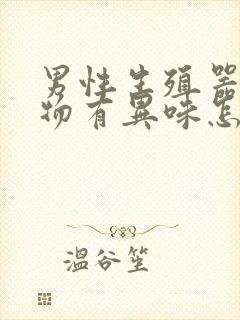 男性生殖器
物有異味怎
温谷笙